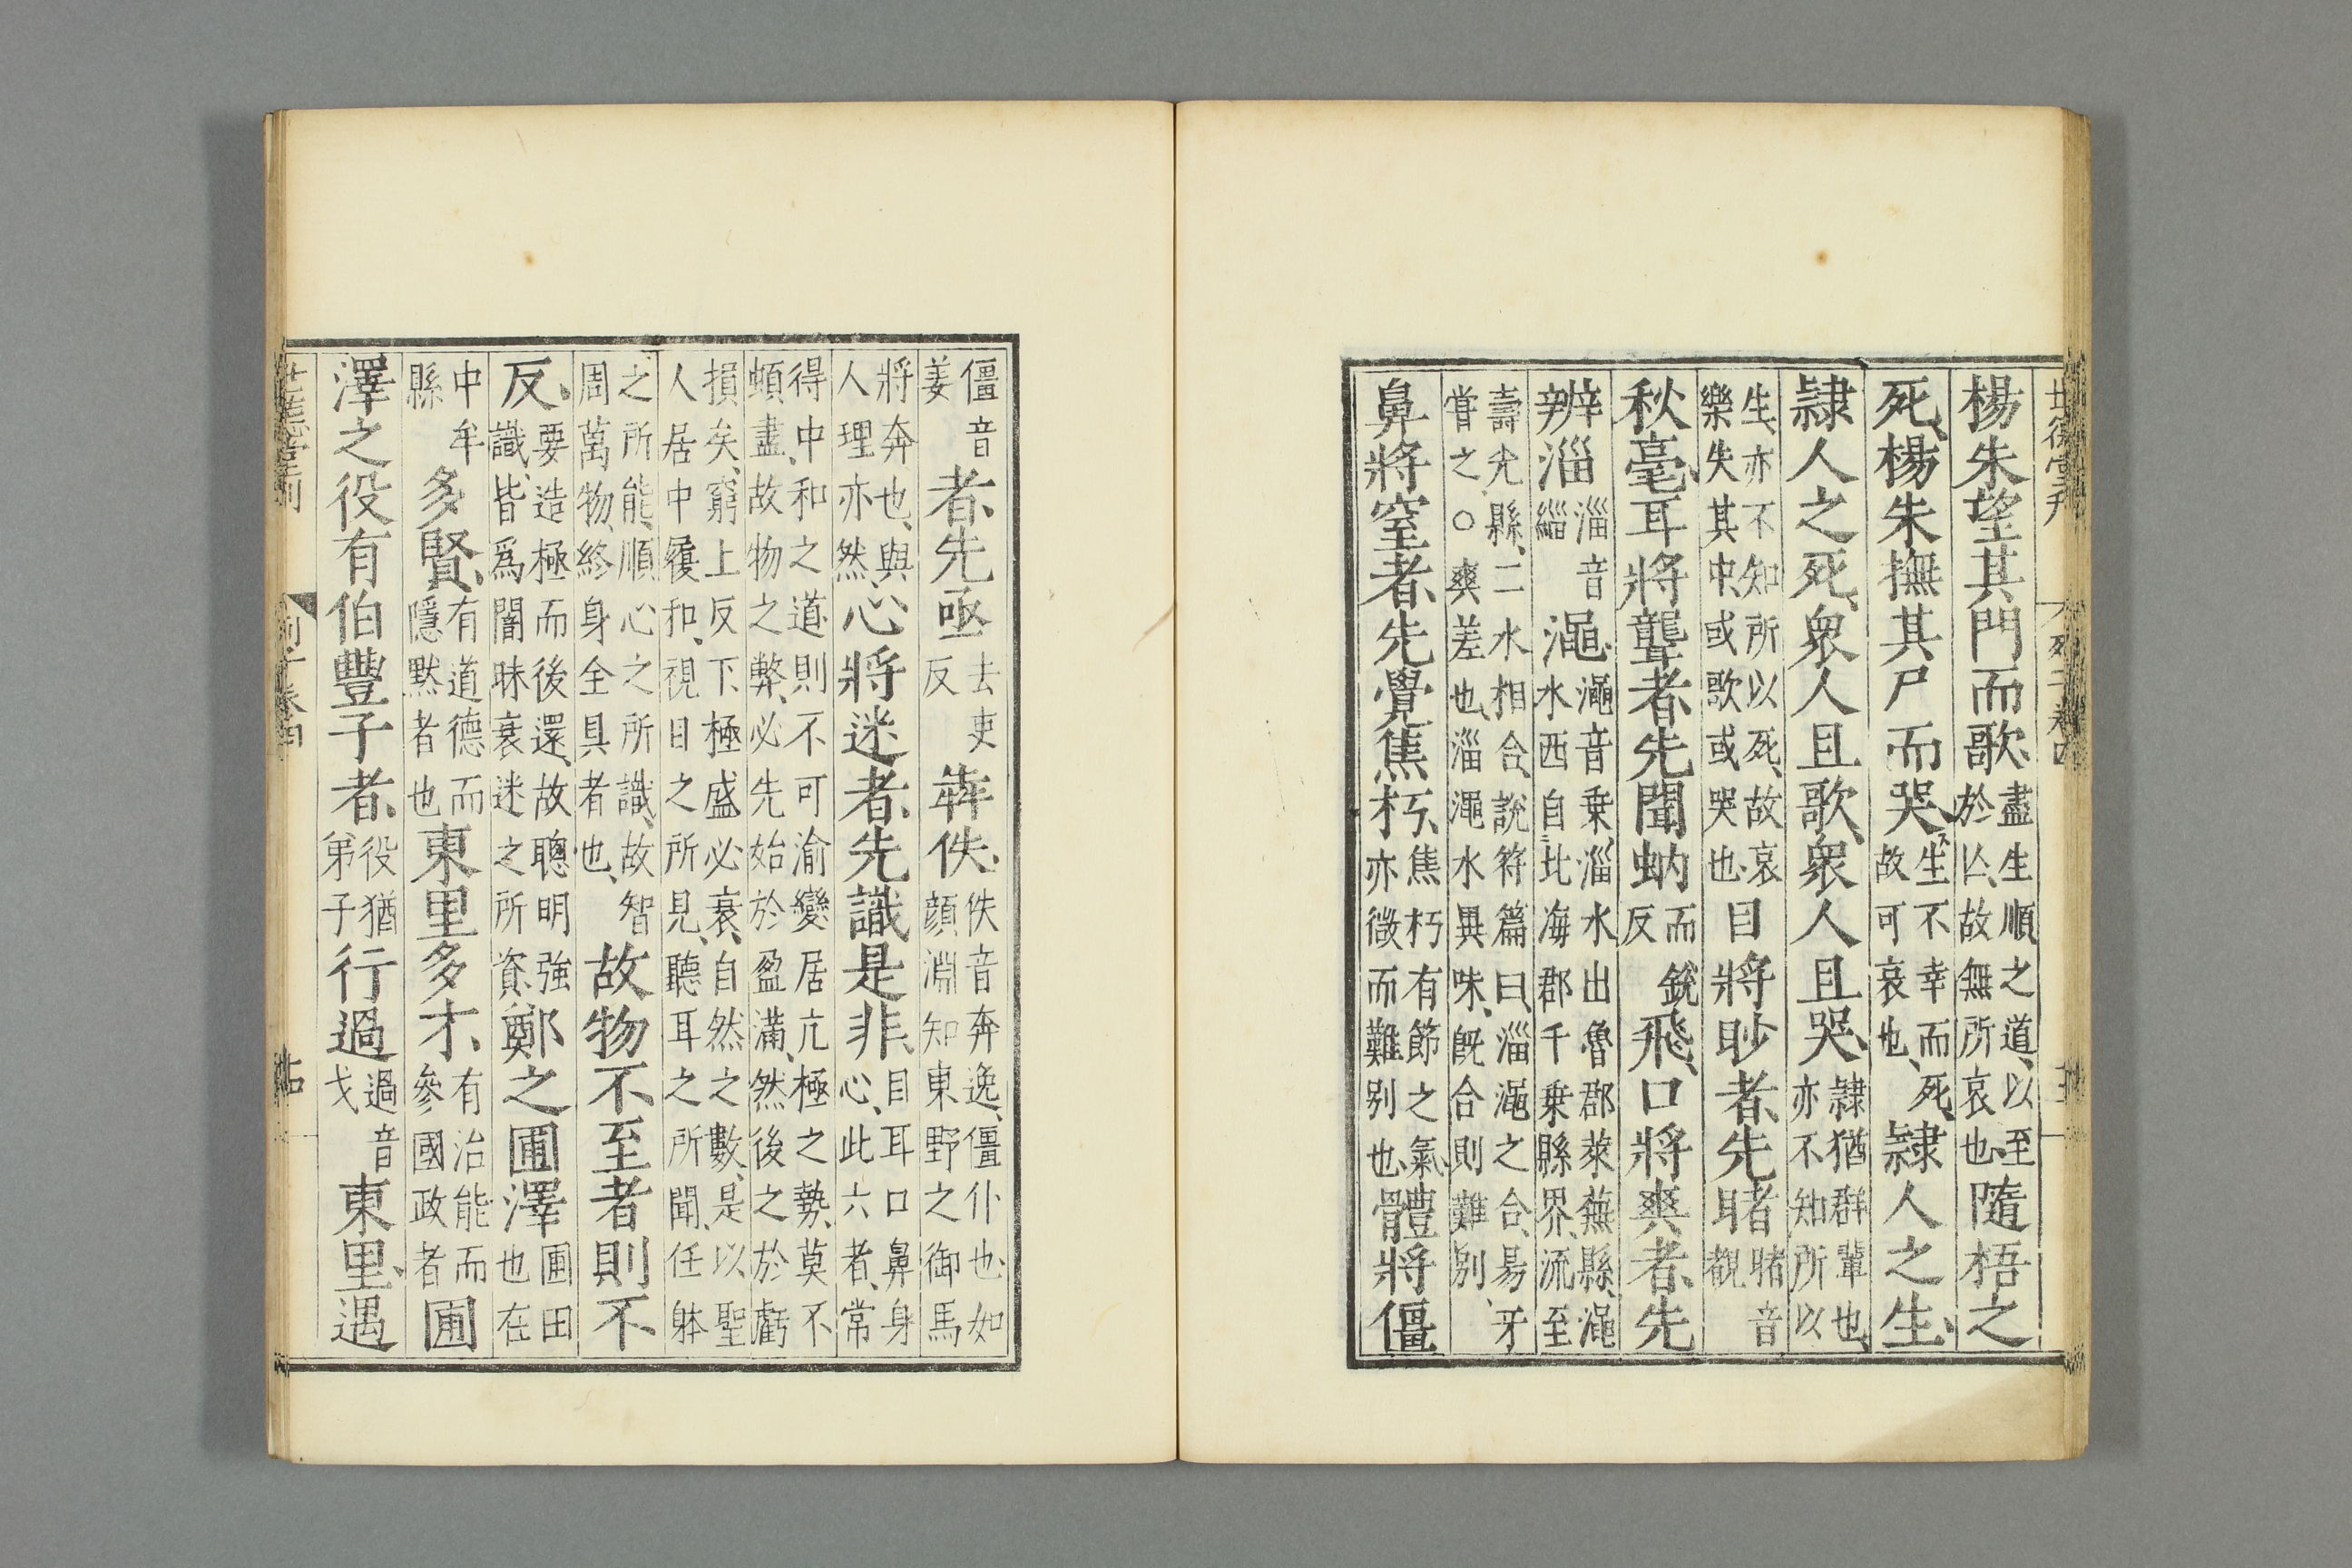 世德堂刊 列子卷四
楊朱望其門而歌、盡生順之道、以至於亾、故無所哀也、隨梧之
死、楊朱撫其尸而哭、生不幸而死、故可哀也、隸人之生、
隸人之死、衆人且歌、衆人且哭、隸猶群輩也、亦不知所以
生、亦不知所以死、故哀樂失其中、或歌或哭也、目將眇者、先睹睹音觀
秋毫、耳將聾者、先聞蚋而銳反飛、口將爽者、先
辨淄淄音緇澠、澠音乗、淄水出魯郡萊蕪縣、澠水西自北海郡千乗縣界、流至
壽光縣、二水相合、說符篇曰、淄澠之合、易牙嘗之、○爽差也、淄澠水異味、旣合則難别、
鼻將窒者、先覺焦朽、焦朽有節之氣、亦微而難别也、體將僵
僵音姜者、先亟去吏反犇佚、佚音奔逸、僵仆也、如顔淵知東野之御馬
將奔也、與人理亦然、心將迷者、先識是非、目耳口鼻身心、此六者、常
得中和之道、則不可渝變、居亢極之勢、莫不頓盡、故物之弊、必先始於盈滿、然後之於虧
損矣、窮上反下、極盛必衰、自然之數、是以聖人居中履和、視目之所見、聽耳之所聞、任躰
之所能、順心之所識、故智周萬物、終身全具者也、故物不至者則不
反、要造極而後還、故聰明強識、皆爲闇昧衰迷之所資、鄭之圃澤圃田也在
中牟縣多賢、有道德而隱默者也東里多才、有治能而參國政者圃
澤之役有伯豐子者、役猶弟子行過過音戈東里、遇
世德堂刊 列子卷四